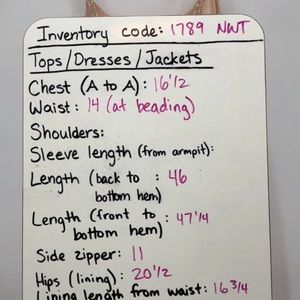 Inventory code: 1789 NWT
Tops/Dresses/Jackets
Chest (A to A): 16 1/2
Waist: 14 (at beading)
Shoulders:
Sleeve length (from armpit):
Length (back to : 46
bottom hem)
Length (front to : 47 1/4
bottom hem)
Side zipper: 11
Hips (lining): 20 1/2
Lining length from waist: 16 3/4